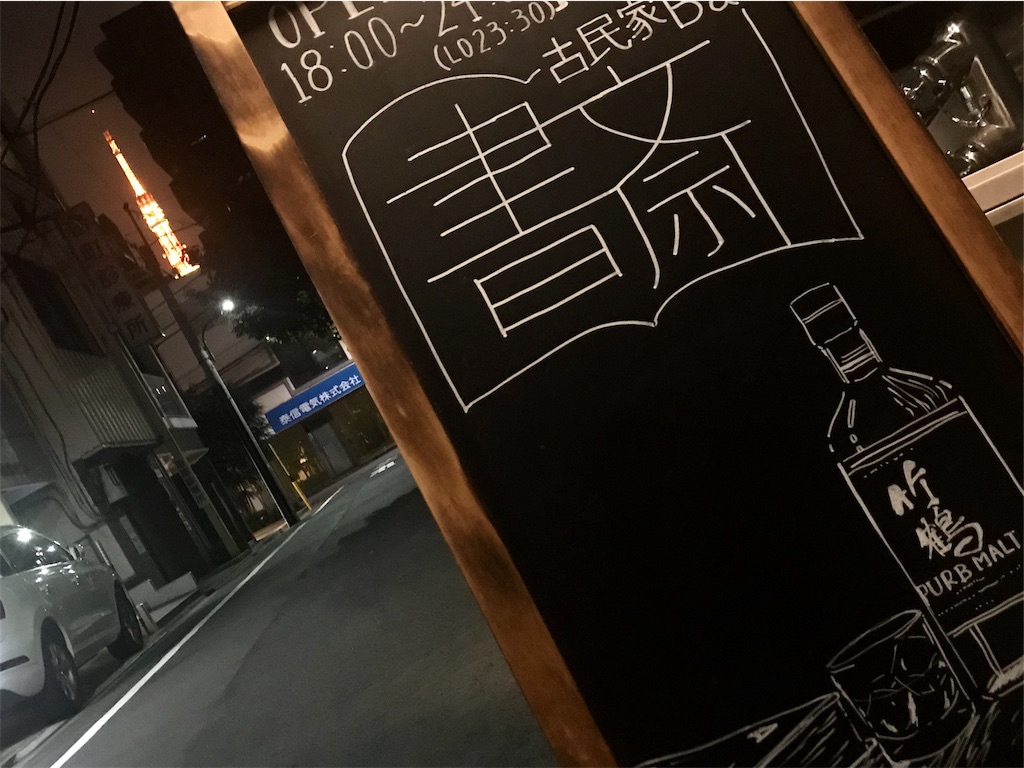 OPE
18:00~24:
(LO23:30)
古民家Ba
書斎
竹鶴
PURB MALT
町診療所
泰信電気株式会社